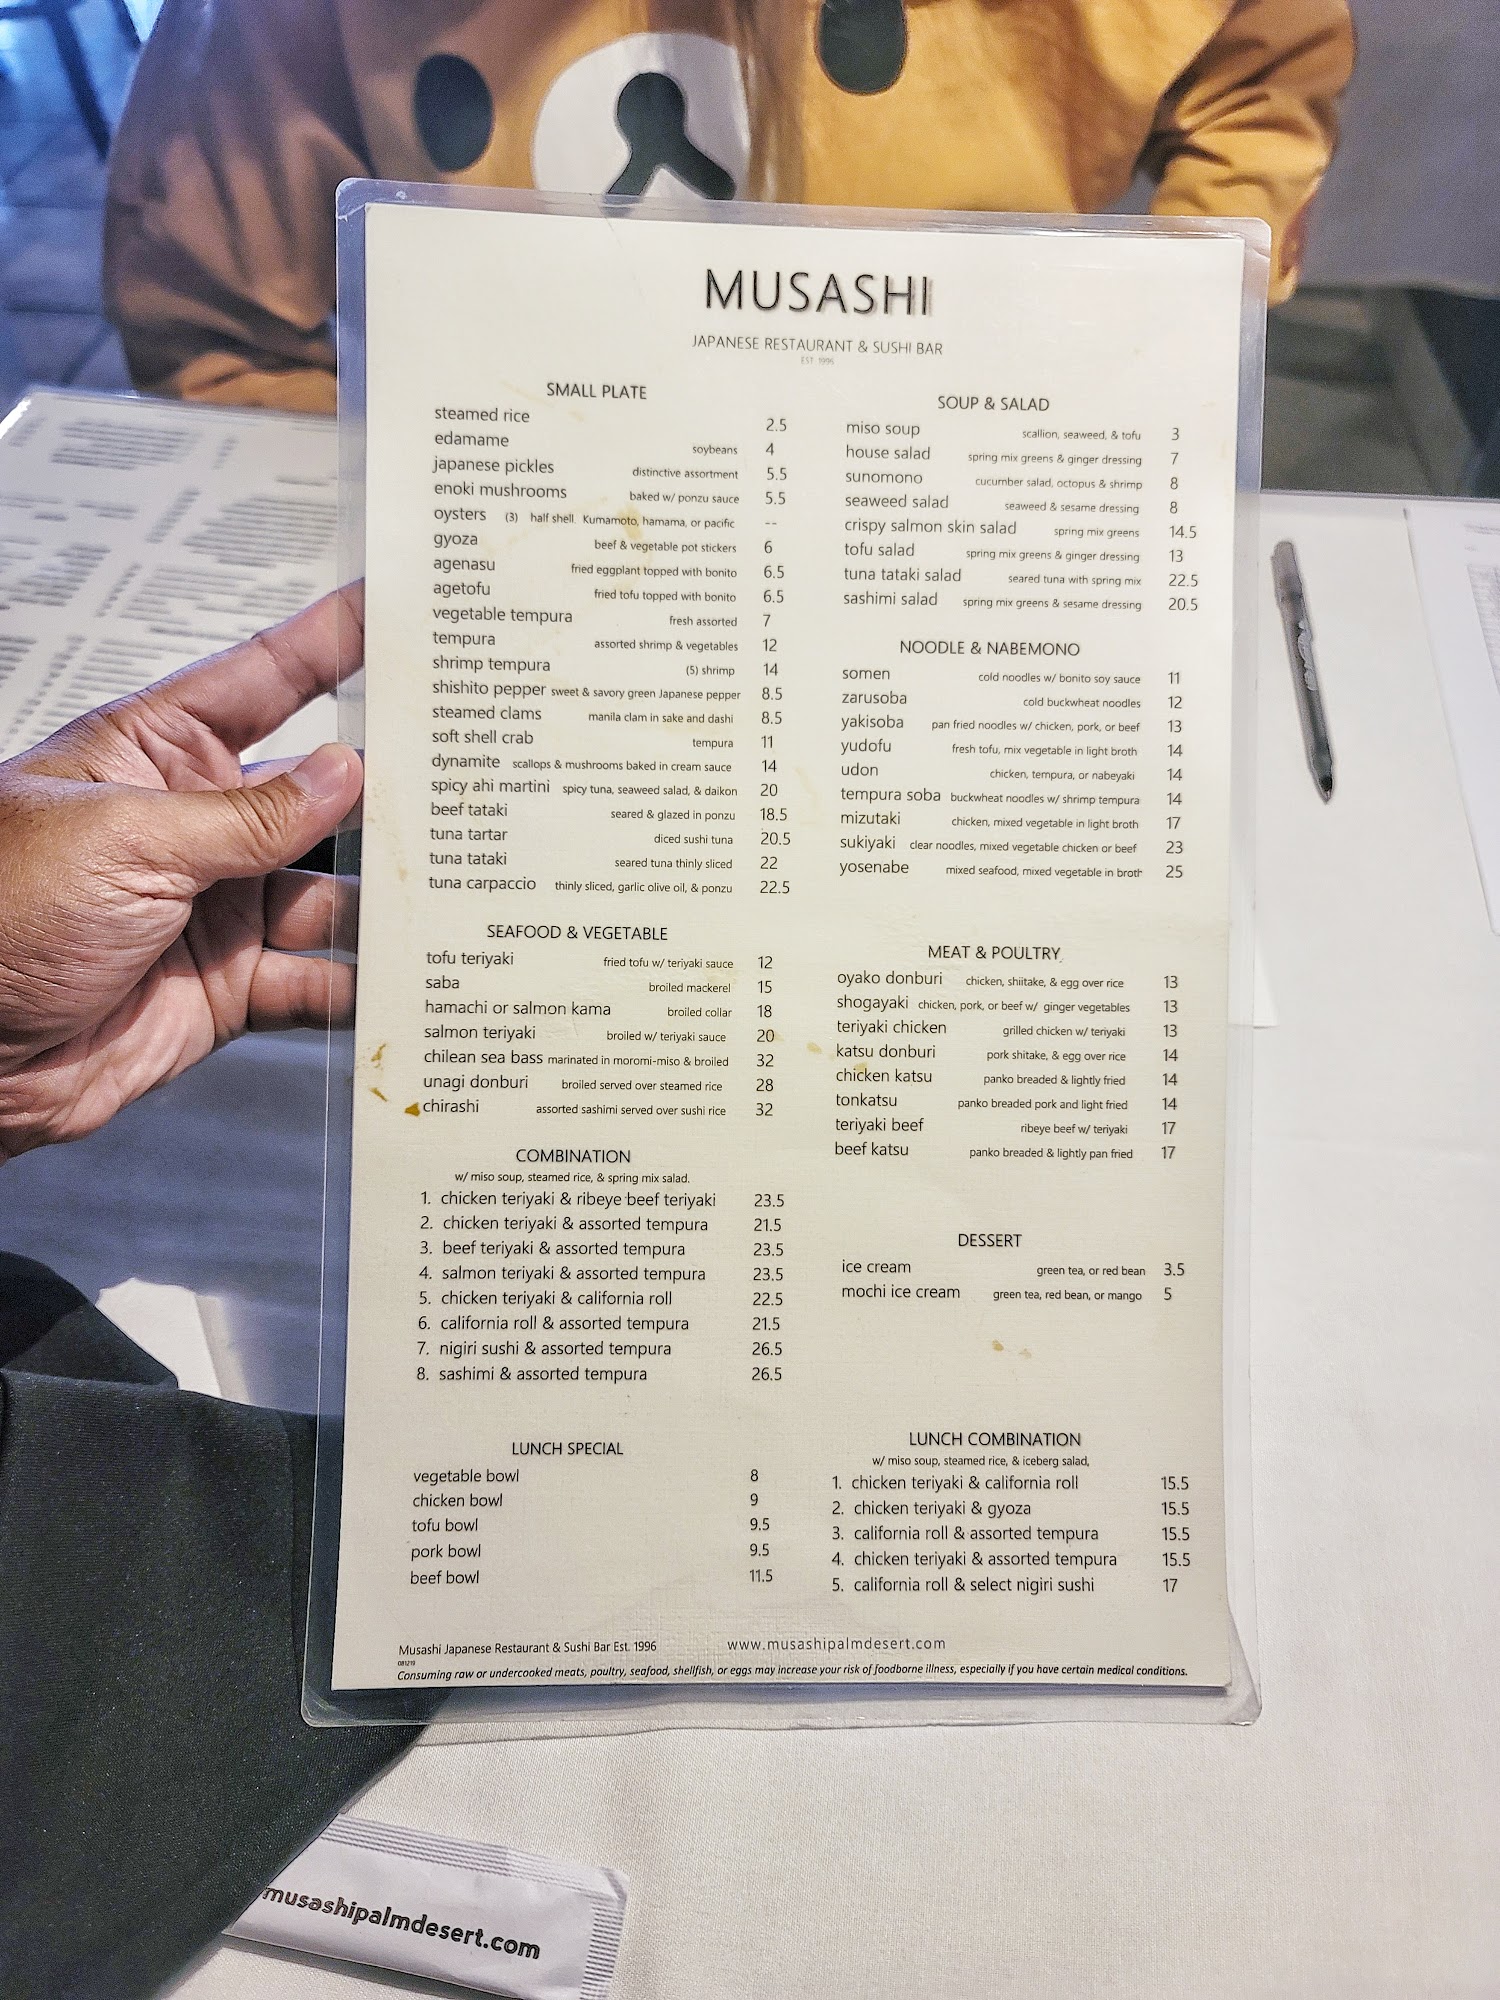 MUSASHI
JAPANESE RESTAURANT & SUSHI BAR
EST 1996
SMALL PLATE
steamed rice 2.5
edamame soybeans 4
japanese pickles distinctive assortment 5.5
enoki mushrooms baked w/ ponzu sauce 5.5
oysters (3) half shell. Kumamoto, hamama, or pacific --
gyoza beef & vegetable pot stickers 6
agenasu fried eggplant topped with bonito 6.5
agetofu fried tofu topped with bonito 6.5
vegetable tempura fresh assorted 7
tempura assorted shrimp & vegetables 12
shrimp tempura (5) shrimp 14
shishito pepper sweet & savory green Japanese pepper 8.5
steamed clams manila clam in sake and dashi 8.5
soft shell crab tempura 11
dynamite scallops & mushrooms baked in cream sauce 14
spicy ahi martini spicy tuna, seaweed salad, & daikon 20
beef tataki seared & glazed in ponzu 18.5
tuna tartar diced sushi tuna 20.5
tuna tataki seared tuna thinly sliced 22
tuna carpaccio thinly sliced, garlic olive oil, & ponzu 22.5
SEAFOOD & VEGETABLE
tofu teriyaki fried tofu w/ teriyaki sauce 12
saba broiled mackerel 15
hamachi or salmon kama broiled collar 18
salmon teriyaki broiled w/ teriyaki sauce 20
chilean sea bass marinated in moromi-miso & broiled 32
unagi donburi broiled served over steamed rice 28
chirashi assorted sashimi served over sushi rice 32
COMBINATION
w/ miso soup, steamed rice, & spring mix salad.
1. chicken teriyaki & ribeye beef teriyaki 23.5
2. chicken teriyaki & assorted tempura 21.5
3. beef teriyaki & assorted tempura 23.5
4. salmon teriyaki & assorted tempura 23.5
5. chicken teriyaki & california roll 22.5
6. california roll & assorted tempura 21.5
7. nigiri sushi & assorted tempura 26.5
8. sashimi & assorted tempura 26.5
LUNCH SPECIAL
vegetable bowl 8
chicken bowl 9
tofu bowl 9.5
pork bowl 9.5
beef bowl 11.5
SOUP & SALAD
miso soup scallion, seaweed, & tofu 3
house salad spring mix greens & ginger dressing 7
sunomono cucumber salad, octopus & shrimp 8
seaweed salad seaweed & sesame dressing 8
crispy salmon skin salad spring mix greens 14.5
tofu salad spring mix greens & ginger dressing 13
tuna tataki salad seared tuna with spring mix 22.5
sashimi salad spring mix greens & sesame dressing 20.5
NOODLE & NABEMONO
somen cold noodles w/ bonito soy sauce 11
zarusoba cold buckwheat noodles 12
yakisoba pan fried noodles w/ chicken, pork, or beef 13
yudofu fresh tofu, mix vegetable in light broth 14
udon chicken, tempura, or nabeyaki 14
tempura soba buckwheat noodles w/ shrimp tempura 14
mizutaki chicken, mixed vegetable in light broth 17
sukiyaki clear noodles, mixed vegetable chicken or beef 23
yosenabe mixed seafood, mixed vegetable in broth 25
MEAT & POULTRY
oyako donburi chicken, shiitake, & egg over rice 13
shogayaki chicken, pork, or beef w/ ginger vegetables 13
teriyaki chicken grilled chicken w/ teriyaki 13
katsu donburi pork shitake, & egg over rice 14
chicken katsu panko breaded & lightly fried 14
tonkatsu panko breaded pork and light fried 14
teriyaki beef ribeye beef w/ teriyaki 17
beef katsu panko breaded & lightly pan fried 17
DESSERT
ice cream green tea, or red bean 3.5
mochi ice cream green tea, red bean, or mango 5
LUNCH COMBINATION
w/ miso soup, steamed rice, & iceberg salad,
1. chicken teriyaki & california roll 15.5
2. chicken teriyaki & gyoza 15.5
3. california roll & assorted tempura 15.5
4. chicken teriyaki & assorted tempura 15.5
5. california roll & select nigiri sushi 17
Musashi Japanese Restaurant & Sushi Bar Est. 1996 www.musashipalmdesert.com
081219
Consuming raw or undercooked meats, poultry, seafood, shellfish, or eggs may increase your risk of foodborne illness, especially if you have certain medical conditions.
musashipalmdesert.com